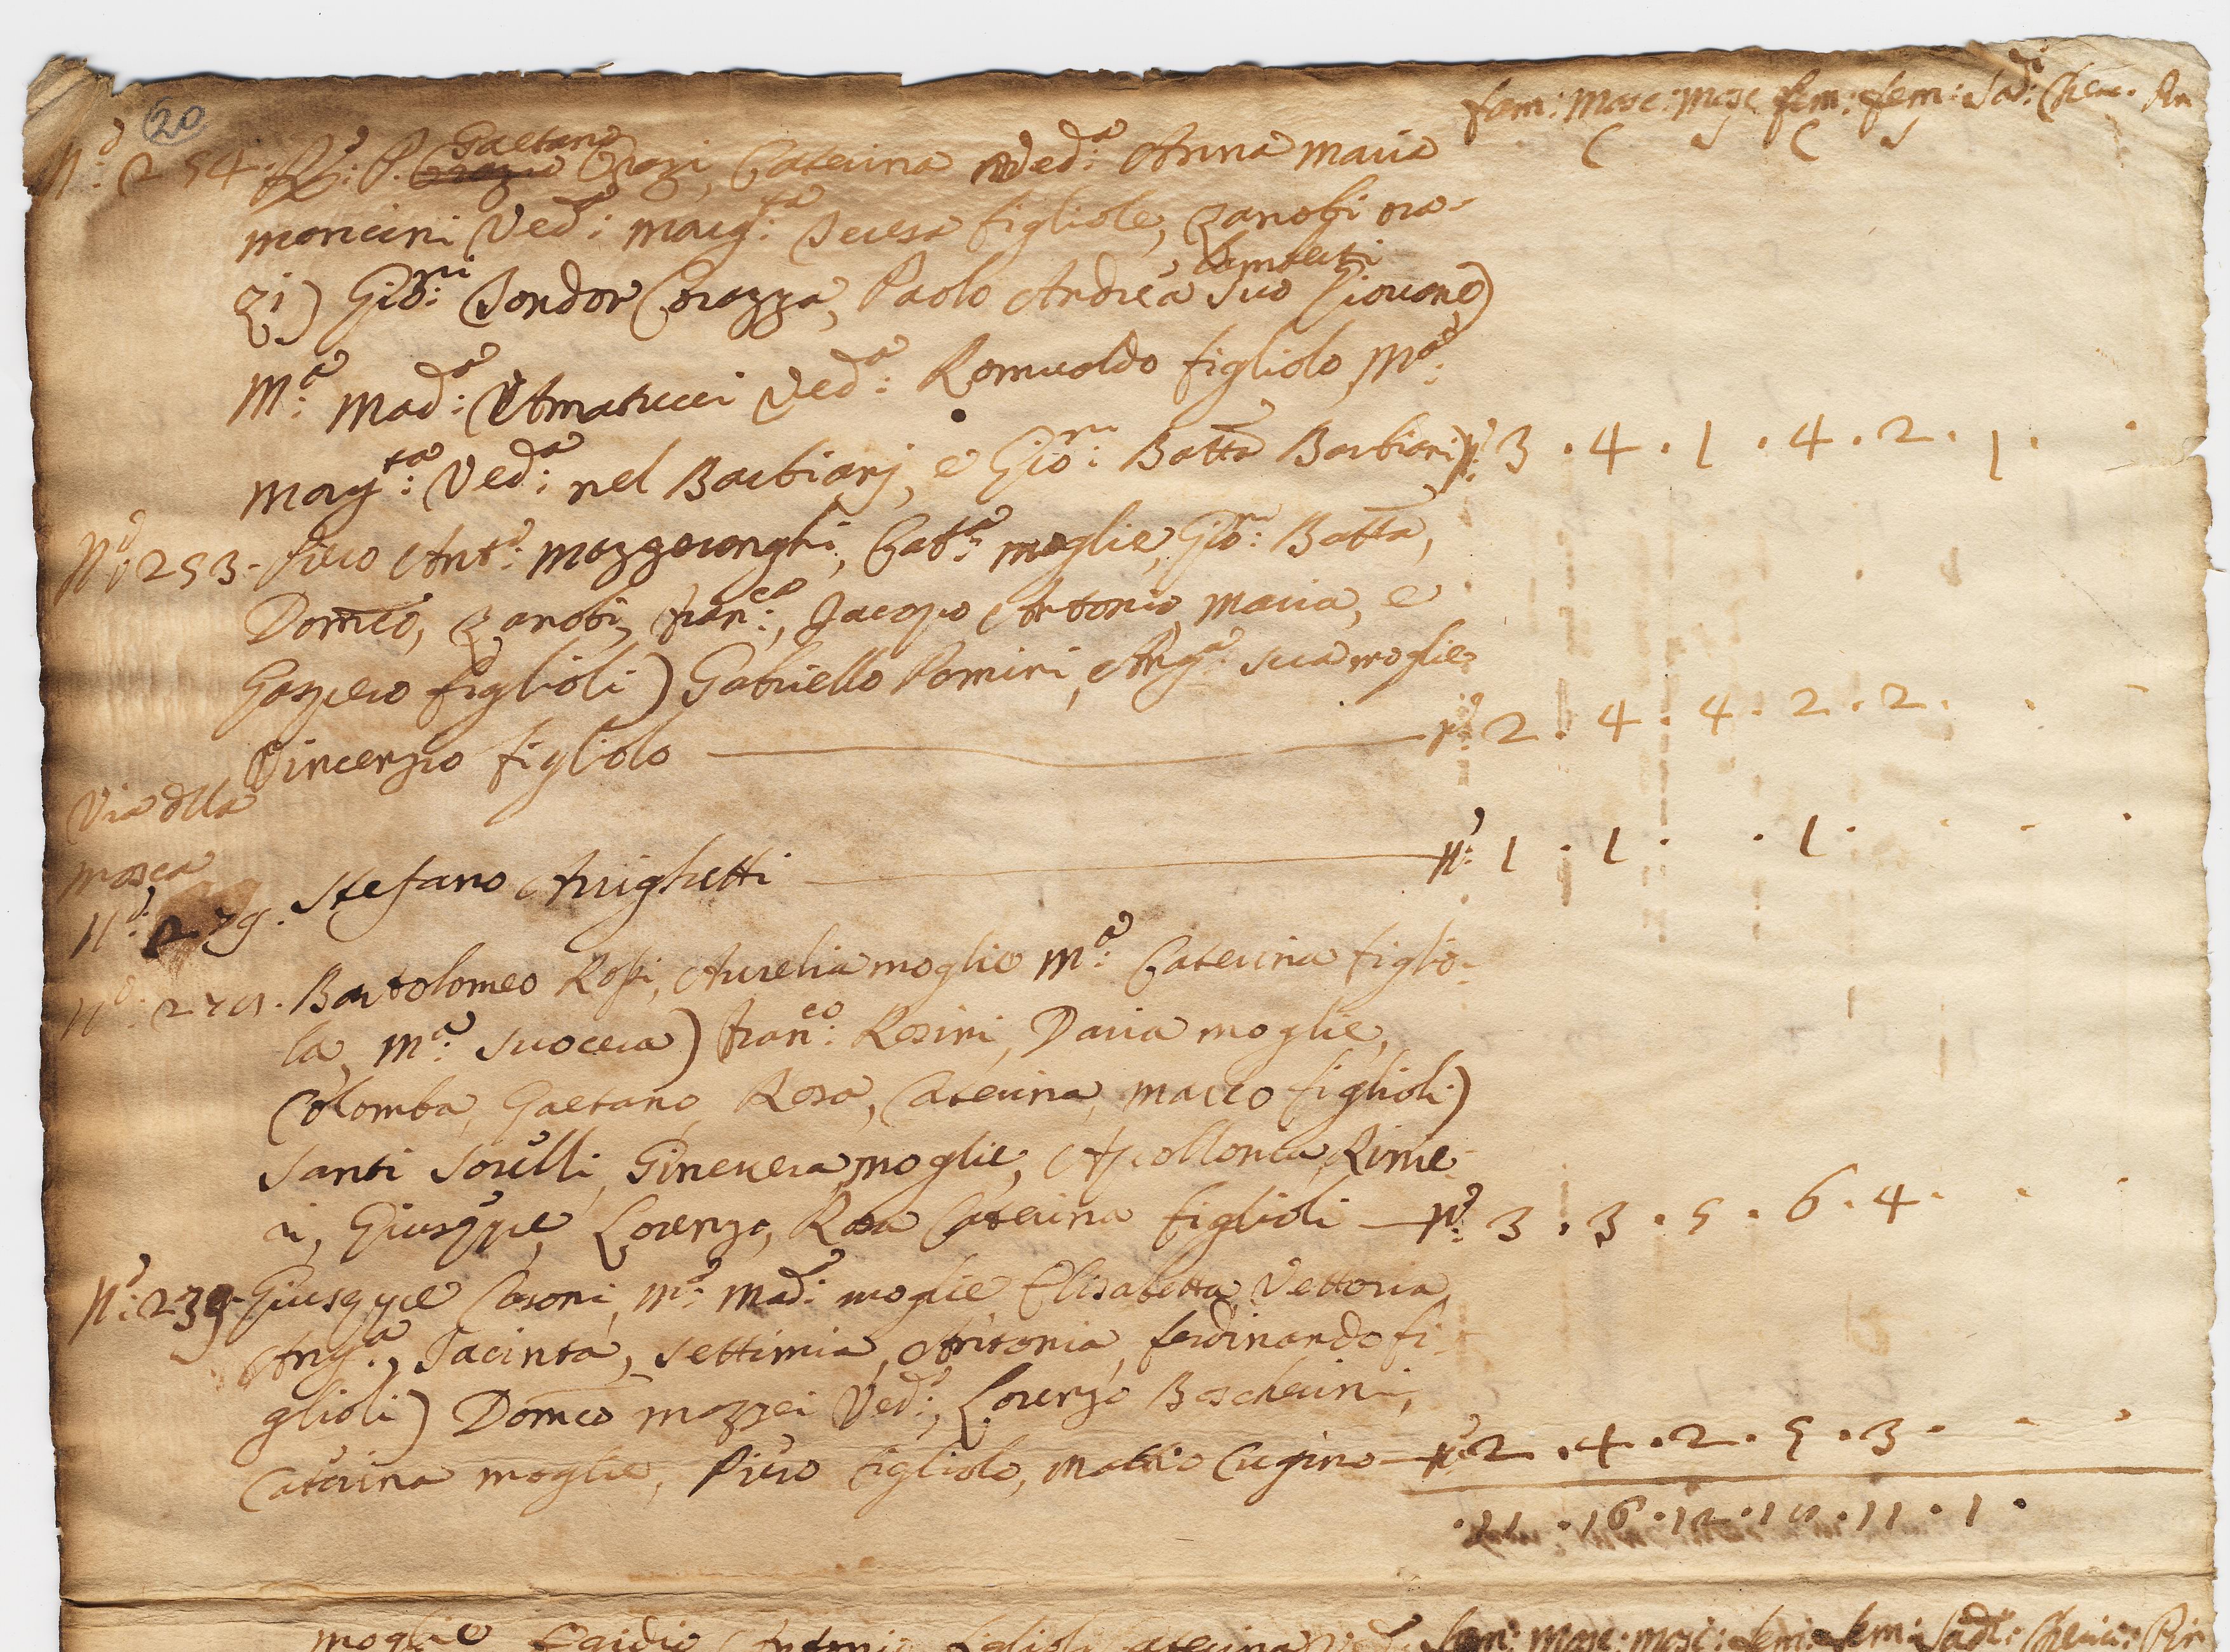 20
fam: Masc: Masc fem: fem: Sad:i Cher.
C S C S
N:o 254. R:o P. Gaetano Grazi, Caterina Ved:a Anna Maria
Moncini Ved:a Marg:ta Teresa figliole, Zanobi Gra-
zi) Gio:ni Corazza, Paolo Andrea Lamberti suo Giovane)
M:a Mad:a Amatucci Ved:a Romualdo figliolo, M:a
Marg:ta Ved:a nel Barbiarj, e Gio:ni Batta Barbiari) N:o 3 . 4 . 1 . 4 . 2 . 1 .
N:o 253 - Piero Ant:o Mazzeranghi, Cat:a moglie, Gio:ni Batta,
Domco, Zanobi, Fran:co, Jacopo Antonio, Maria, e
Gaspero figlioli) Gabriello Pomini, Ang:a sua moglie
Vincenzio figliolo N:o 2 . 4 . 4 . 2 . 2 .
Via della
Mosca
N:o 279. Stefano Arrighetti N:o 1 . 1 . . 1 .
N:o Bartolomeo Rossi, Aurelia moglie M:a Caterina figlio-
la, M:a suocera) Fran:co Rosini, Daria moglie,
Colomba, Gaetano, Rosa, Caterina, Marco figlioli)
Santi Sorelli, Ginevera moglie, Apollonia, Rinie-
ri, Giuseppe, Lorenzo, Rosa Caterina figlioli N:o 3 . 3 . 5 . 6 . 4 .
N:o 239 - Giuseppe Casoni, M:a Mad:a moglie Elisabetta, Vettoria
Ang:a, Jacinta, Settimia, Antonia, Ferdinando fi-
glioli) Domco Mazzei Ved:o, Lorenzo Boscherini,
Caterina moglie, Piero figliolo, Mattio Cugino N:o 2 . 4 . 2 . 5 . 3 .
. 11 . 16 . 12 . 18 . 11 . 1 .
moglie Egidio Antonio figlioli Caterina Ved:a fam: Masc: Masc: fem: fem: Sad:i Cheric: